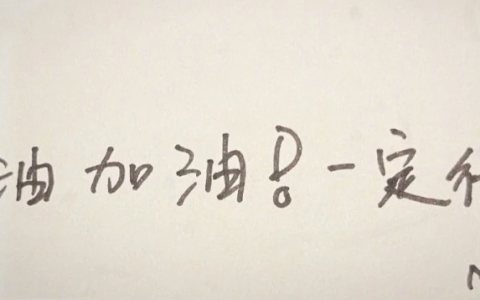 油加油!一定